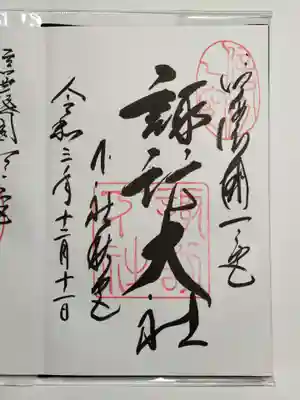 信濃國一之宮
諏訪大社
下社秋宮
令和三年十二月十一日